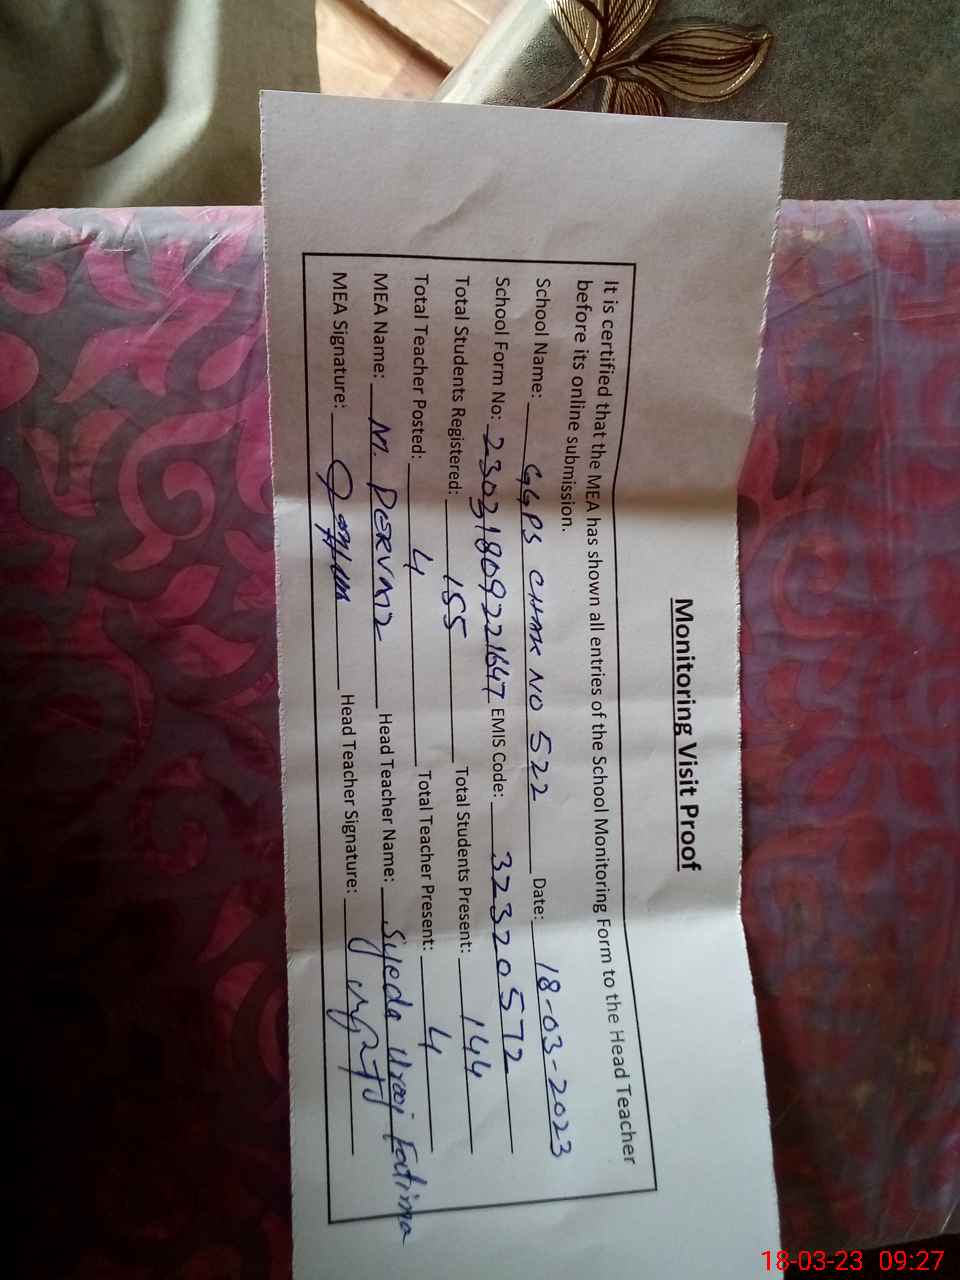 Monitoring Visit Proof
It is certified that the MEA has shown all entries of the School Monitoring Form to the Head Teacher
before its online submission.
School Name: GGPS CHAK NO 522 Date: 18-03-2023
School Form No: 23031809221647 EMIS Code: 32320572
Total Students Registered: 155 Total Students Present: 144
Total Teacher Posted: 4 Total Teacher Present: 4
MEA Name: M. PERVAIZ Head Teacher Name: Syeda Urooj Fatima
MEA Signature: Head Teacher Signature:
18-03-23 09:27